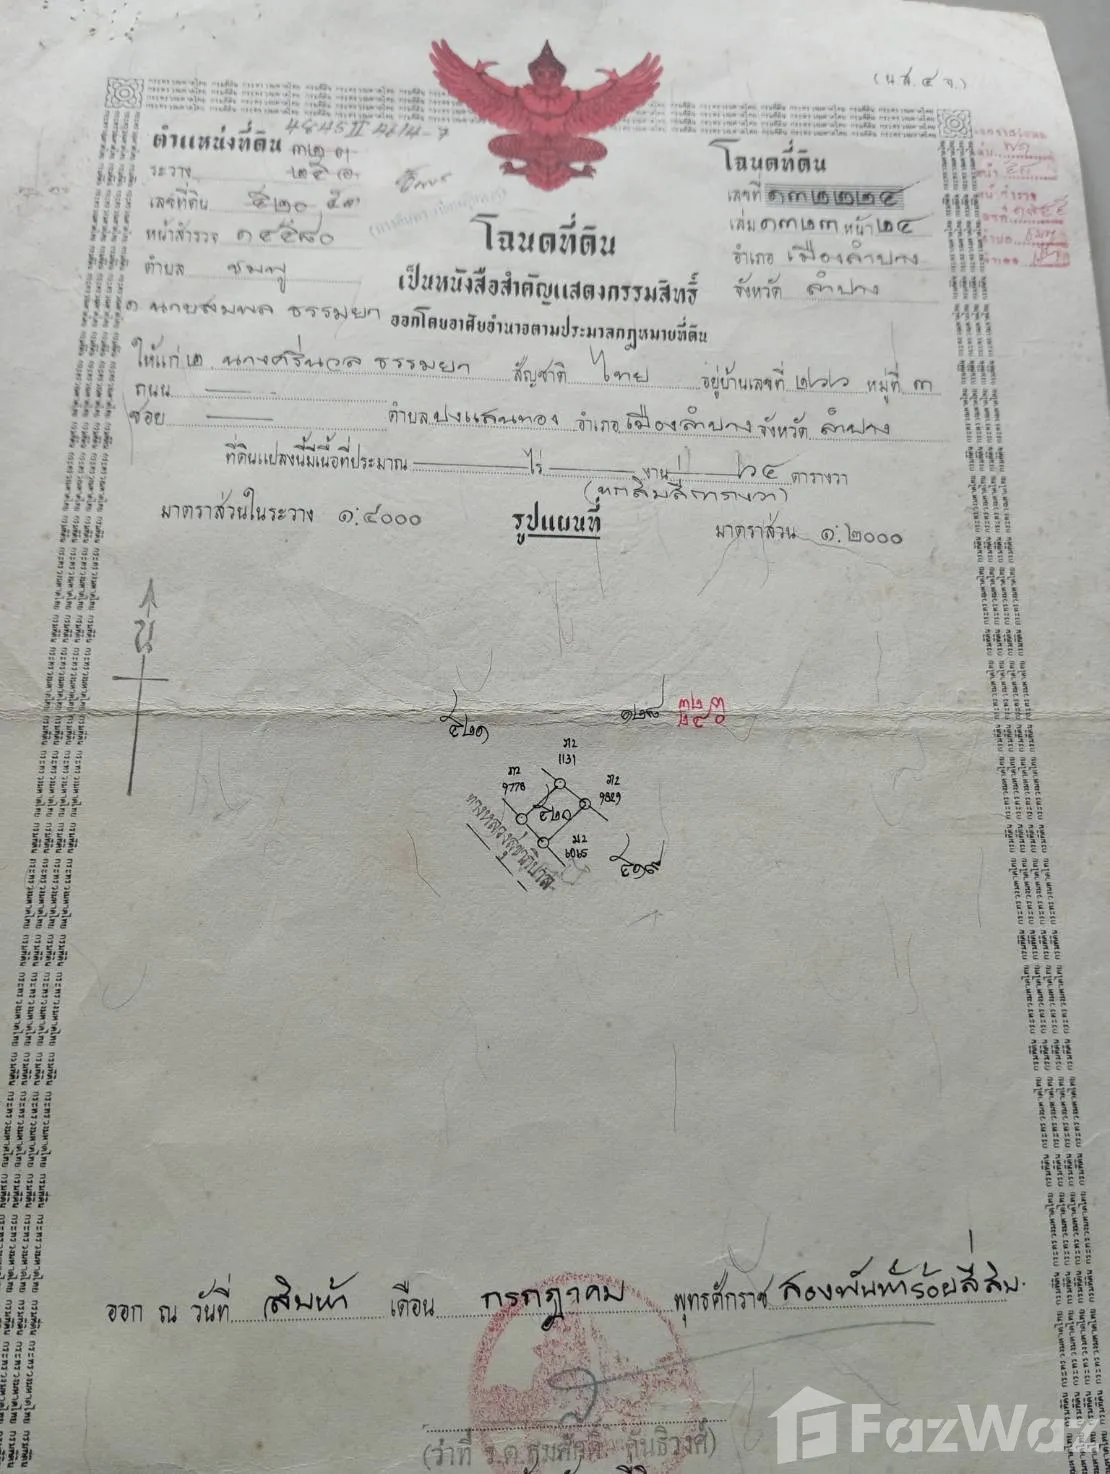 (น.ส.๔ จ.)
4845 II 4414-7
ตำแหน่งที่ดิน
ระวาง
เลขที่ดิน ๕๒๐
หน้าสำรวจ ๑๕๕๘๐
ตำบล ชมพู
โฉนดที่ดิน
เลขที่ ๑๓๒๒๒๔
เล่ม ๑๓๒๓ หน้า ๒๔
อำเภอ เมืองลำปาง
จังหวัด ลำปาง
โฉนดที่ดิน
เป็นหนังสือสำคัญแสดงกรรมสิทธิ์
ออกโดยอาศัยอำนาจตามประมวลกฎหมายที่ดิน
๑ นายสมพล ธรรมยา
ให้แก่ ๒ นางศรีนวล ธรรมยา สัญชาติ ไทย อยู่บ้านเลขที่ ๒๖๖ หมู่ที่ ๓
ถนน
ซอย ตำบล ปงแสนทอง อำเภอ เมืองลำปาง จังหวัด ลำปาง
ที่ดินแปลงนี้มีเนื้อที่ประมาณ ไร่ งาน ๖๔ ตารางวา
(หกสิบสี่ตารางวา)
มาตราส่วนในระวาง ๑:๔๐๐๐ รูปแผนที่ มาตราส่วน ๑:๒๐๐๐
น
๕๒๑
๑๒๘
1131
9778
9829
๕๒๐
6065
๕๑๙
ออก ณ วันที่ สิบห้า เดือน กรกฎาคม พุทธศักราช สองพันห้าร้อยสี่สิบ
FazWaz